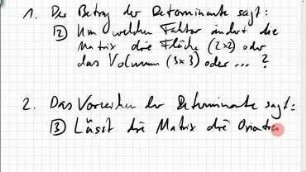 1. Der Betrag der Determinante sagt:
② Um welchen Faktor ändert die
Matrix die Fläche (2x2) oder
das Volumen (3x3) oder ... ?
2. Das Vorzeichen der Determinante sagt:
③ Lässt die Matrix die